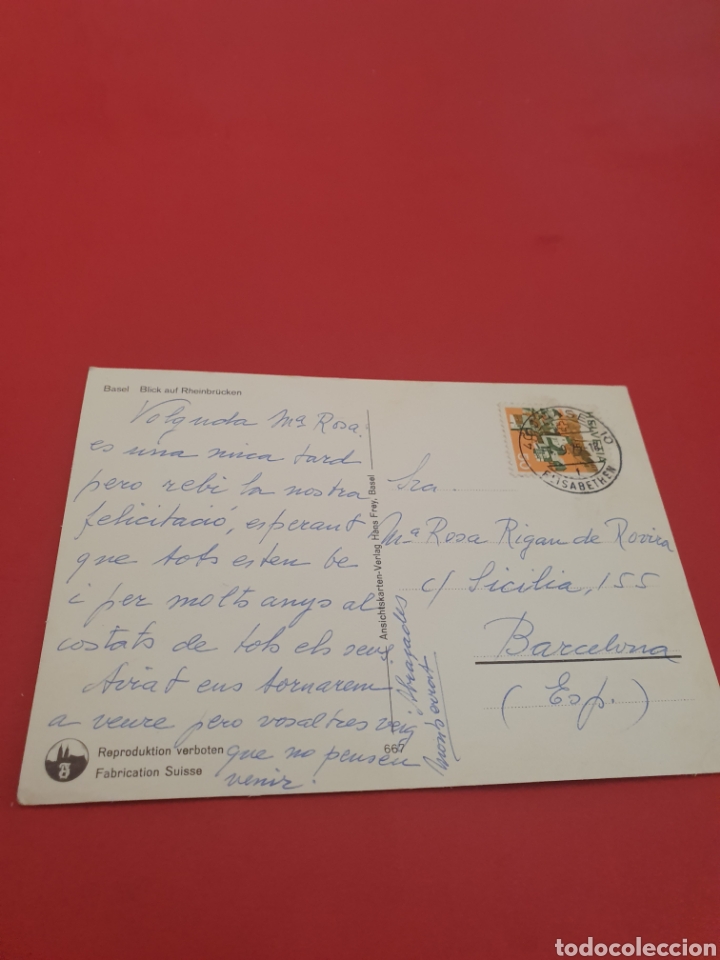 Basel Blick auf Rheinbrücken
Volguda Mª Rosa:
es una mica tard
pero rebi la nostra
felicitació, esperant
que tots esten be
i per molts anys al
costats de tots els seus
Aviat ens tornarem
a veure pero vosaltres veig
que no pensen
venir.
Abraçades
Montserrat
Reproduktion verboten
Fabrication Suisse
667
Ansichtskarten-Verlag Hans Frey, Basel
HELVETIA
BASEL 10
ELISABETHEN
Sra.
Mª Rosa Rigau de Rovira
c/ Sicilia, 155
Barcelona
(Esp.)
todocoleccion